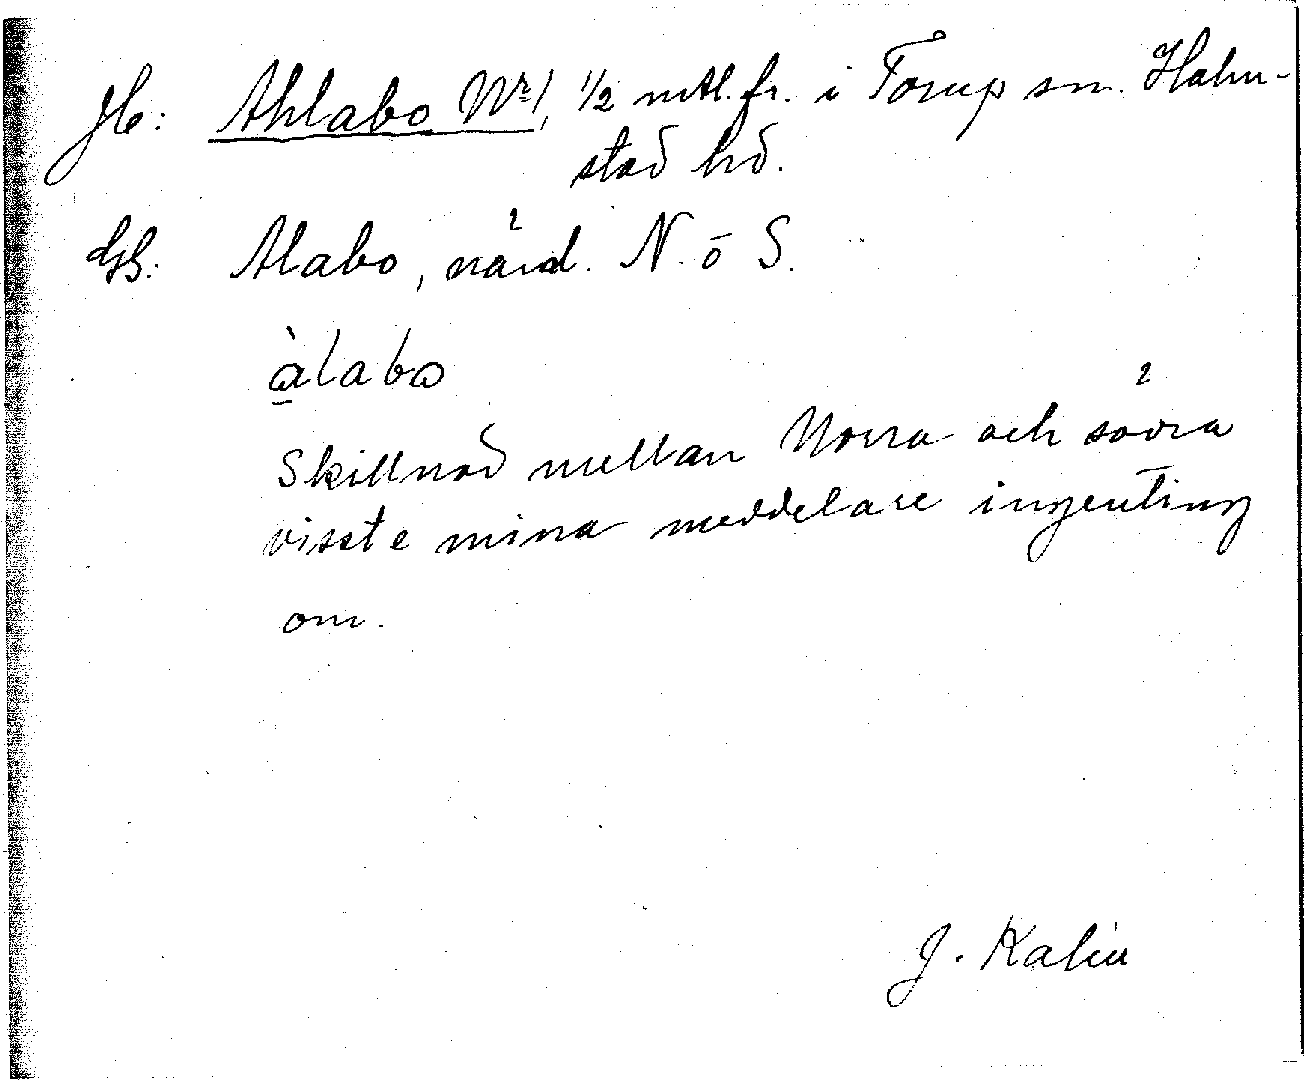 Jb: Ahlabo Nr 1, 1/2 mtl. fr. i Torup sn. Halm-
stad hd.
GS: Alabo, värd. N. o S.
àlabo
Skillnad mellan Norra och södra
visste mina meddelare ingenting
om.
J. Kalin